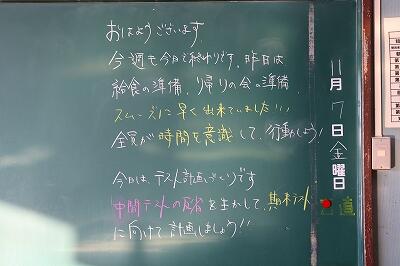 おはようございます
今週も今日で終わりです。昨日は
給食の準備、帰りの会の準備、
スムーズに早く出来ていました!!!
全員が時間を意識して、行動しよう!
今日は、テスト計画づくりです
中間テストの反省を生かして、期末テスト
に向けて計画しましょう!!
11月7日金曜日
日直